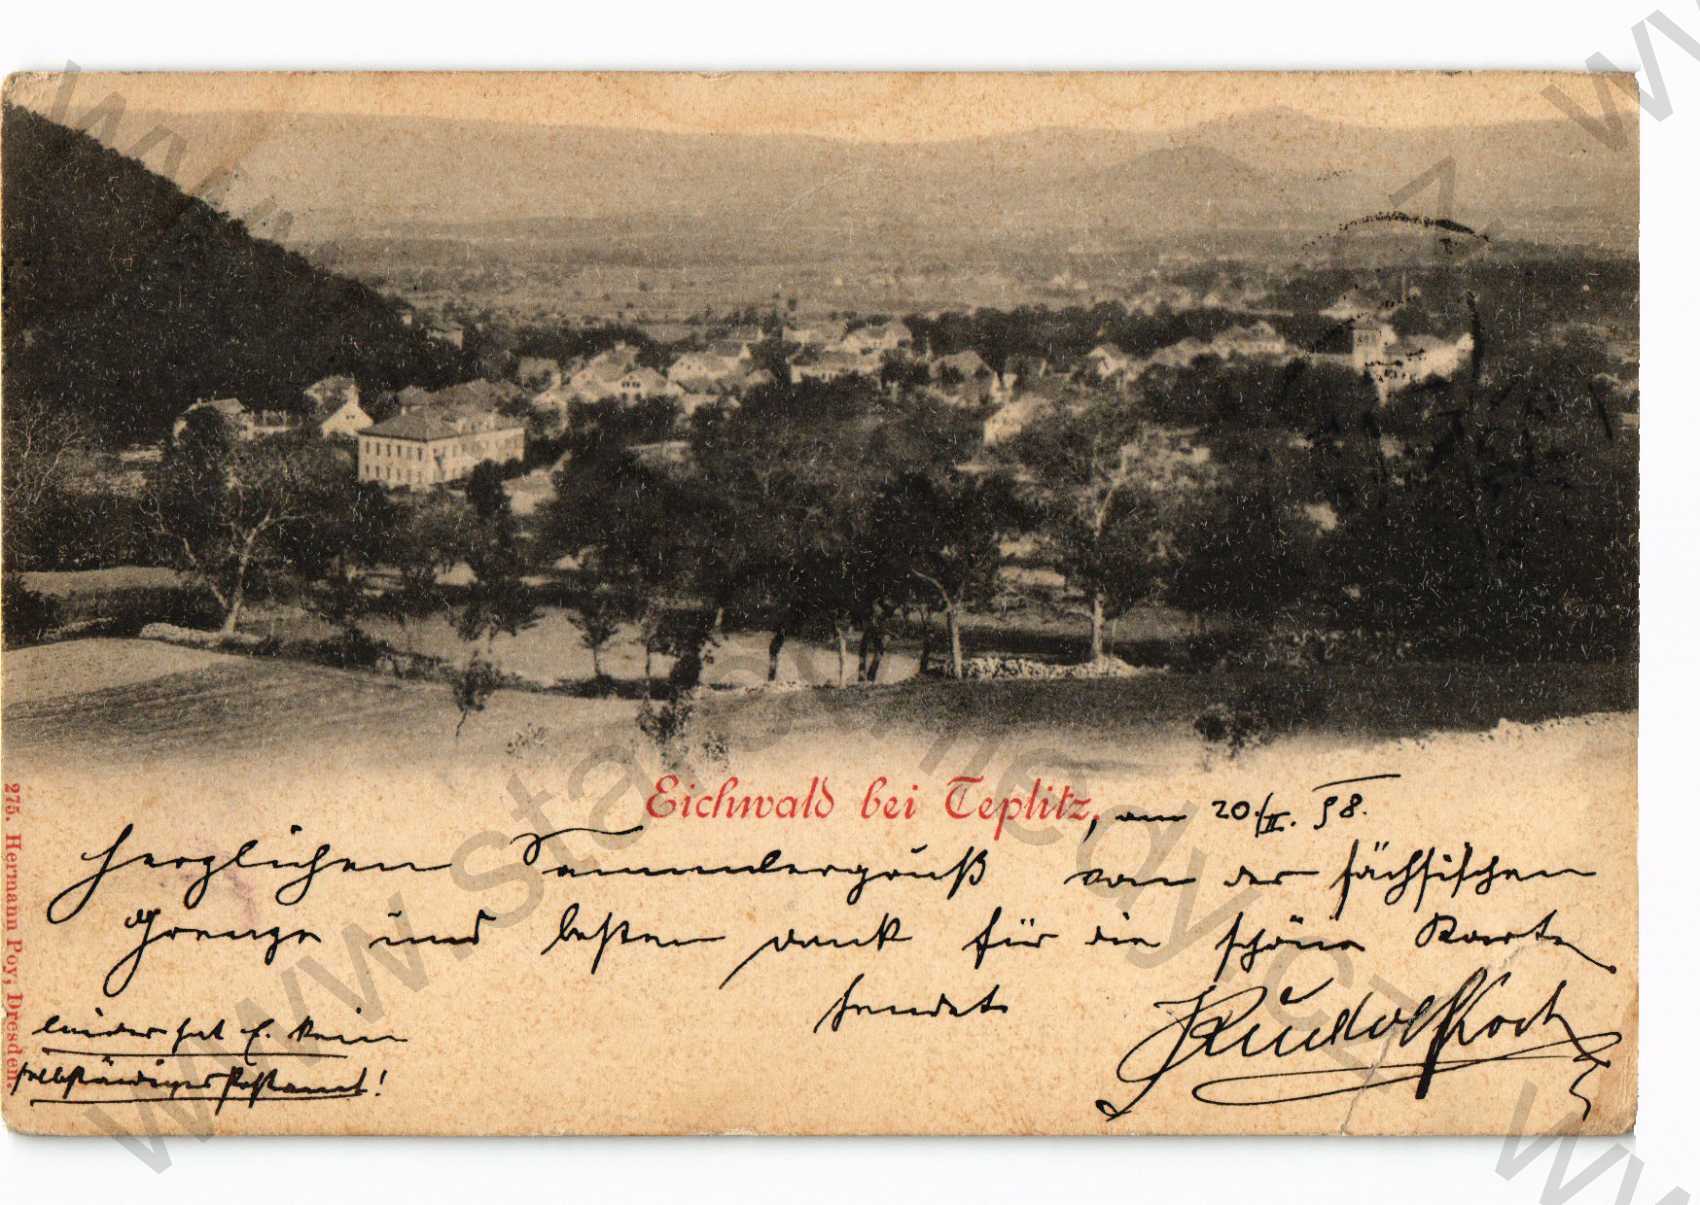 Eichwald bei Teplitz, am 20./II. 98.
Herzlichen Sammlergruß von der sächsischen
Grenze und besten Dank für die schöne Karte
sendet Rudolf Koch
leider hat E. kein
selbständiges Postamt!
275. Hermann Poy, Dresden.